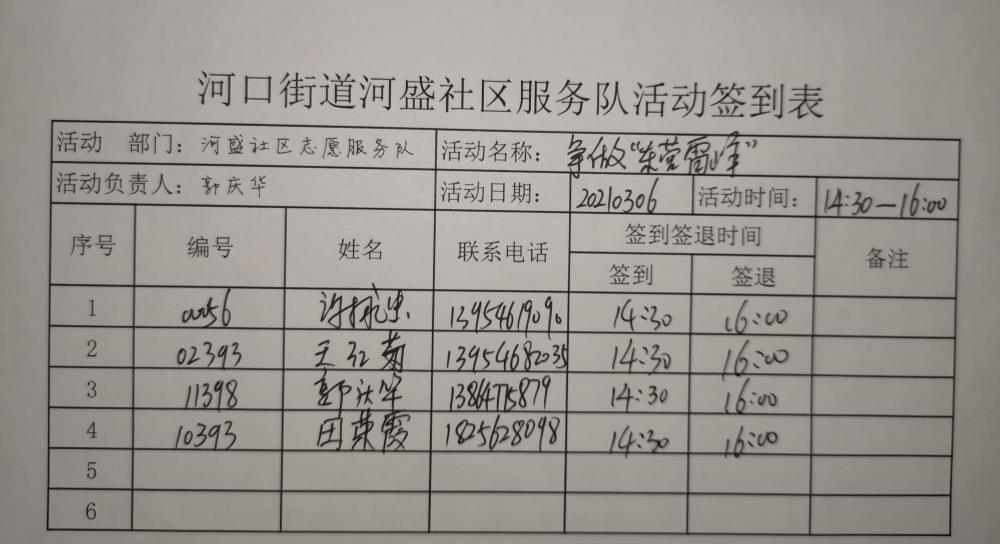 河口街道河盛社区服务队活动签到表
活动 部门：河盛社区志愿服务队 活动名称：争做“东营雷峰”
活动负责人：郭庆华 活动日期：20210306 活动时间：14:30—16:00
序号 编号 姓名 联系电话 签到签退时间 备注
签到 签退
1 13954619090 14:30 16:00
2 02393 王红菊 13954682035 14:30 16:00
3 11398 郭庆华 13864775879 14:30 16:00
4 10393 田荣霞 1825628098 14:30 16:00
5
6